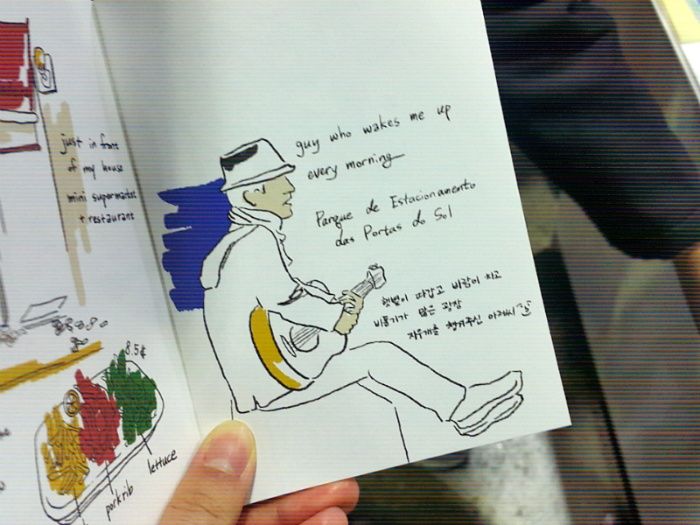 just in front
of my house
mini supermarket
+ restaurant
8.5€
lettuce
porkrib
guy who wakes me up
every morning
Parque de Estacionamento
das Portas do Sol
햇볕이 따갑고 바람이 차고
비둘기가 많은 광장
지우개를 챙겨주신 아저씨